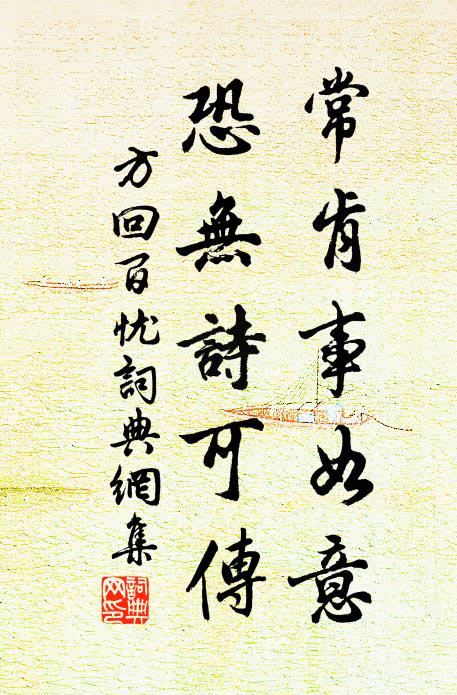 常肯事如意
恐無詩可傳
方回百忧詞典網集
詞典網印